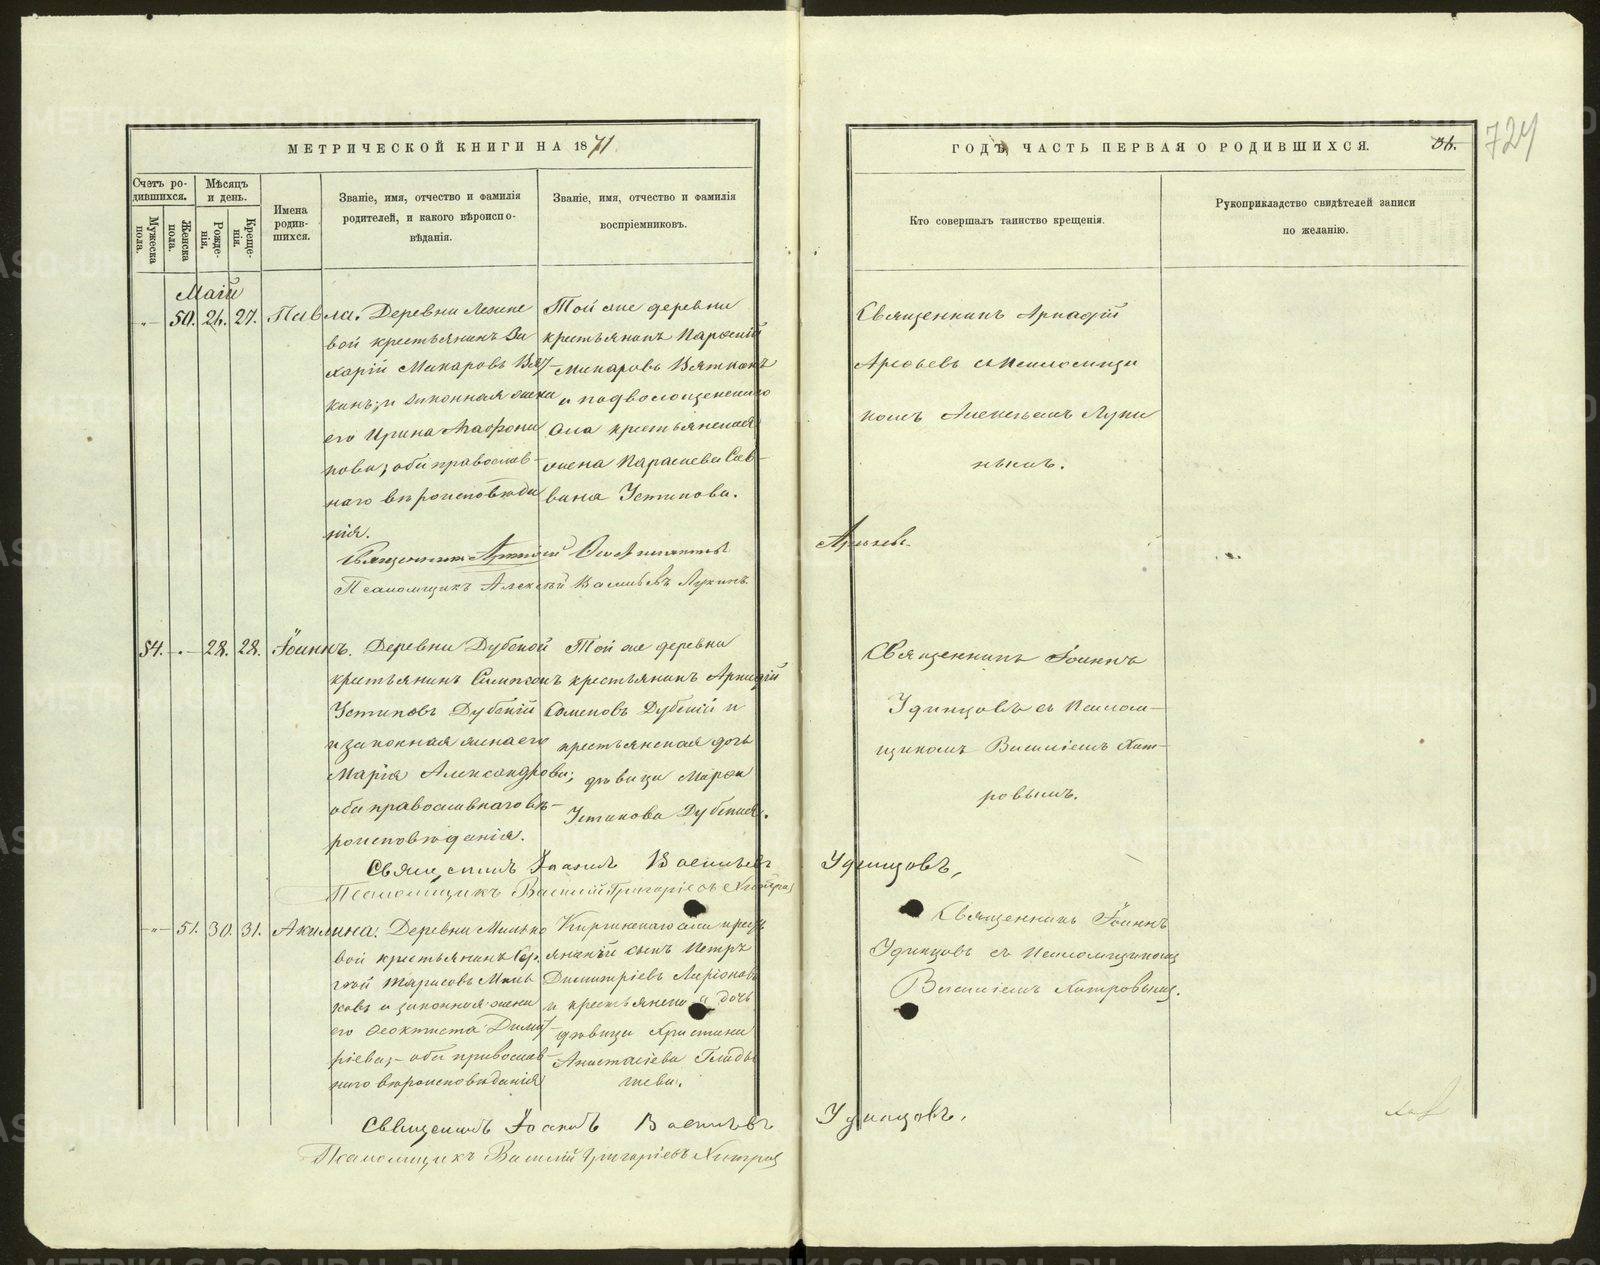 МЕТРИЧЕСКОЙ КНИГИ НА 1871
Счетъ ро-
дившихся.
Мужеска
пола.
Женска
пола.
Мѣсяцъ
и день.
Рожде-
нія.
Креще-
нія.
Имена
родив-
шихся.
Званіе, имя, отчество и фамилія
родителей, и какого вѣроиспо-
вѣданія.
Званіе, имя, отчество и фамилія
воспріемниковъ.
Май
50. 26. 27. Павла.
Деревни
вой крестьянинъ За
харій Макаровъ Вят-
кинъ; и законная жена
его Ирина
нова; оба православ-
наго вѣроисповѣда
нія.
Той же деревни
крестьянинъ
Макаровъ Вяткинъ
и
крестьянская
жена Параскева Сав-
вина Устинова.
Священникъ
Псаломщикъ Алексѣй Васильевъ Лукинъ
54. - 28. 28. Іоаннъ.
Деревни Дубской
крестьянинъ Симеонъ
Устиновъ Дубскій
и законная жена его
Марія Александрова;
оба православнаго вѣ-
роисповѣданія.
Той же деревни
крестьянинъ Аркадій
Семеновъ Дубскій и
крестьянская дочь
дѣвица Марѳа
Устинова Дубская.
Священникъ Іоаннъ Васильевъ
Псаломщикъ Василій Григорьевъ
51. 30. 31. Акилина.
Деревни Милько
вой крестьянинъ Сер-
гѣй Тарасовъ Миль
ковъ и законная жена
его Ѳеоктиста Димит-
ріева; - оба православ-
наго вѣроисповѣданія
Киргинскаго села крестъ
янскій сынъ Петръ
Димитріевъ Ларіоновъ
и крестьянская дочь
дѣвица Христина
Анастасіева Глады
шева.
Священникъ Іоаннъ Васильевъ
Псаломщикъ Василій Григорьевъ
ГОДЪ, ЧАСТЬ ПЕРВАЯ О РОДИВШИХСЯ.
724
Кто совершалъ таинство крещенія.
Рукоприкладство свидѣтелей записи
по желанію.
Священникъ Аркадій
Арефьевъ съ Псаломщи
комъ Алексѣемъ Луки
нымъ.
Священникъ Іоаннъ
Удинцовъ съ Псалом-
щикомъ Василіемъ Хит-
ровымъ.
Удинцовъ,
Священникъ Іоаннъ
Удинцовъ съ Псаломщикомъ
Василіемъ Хитровымъ.
Удинцовъ.
METRIKI.GASO-URAL.RU